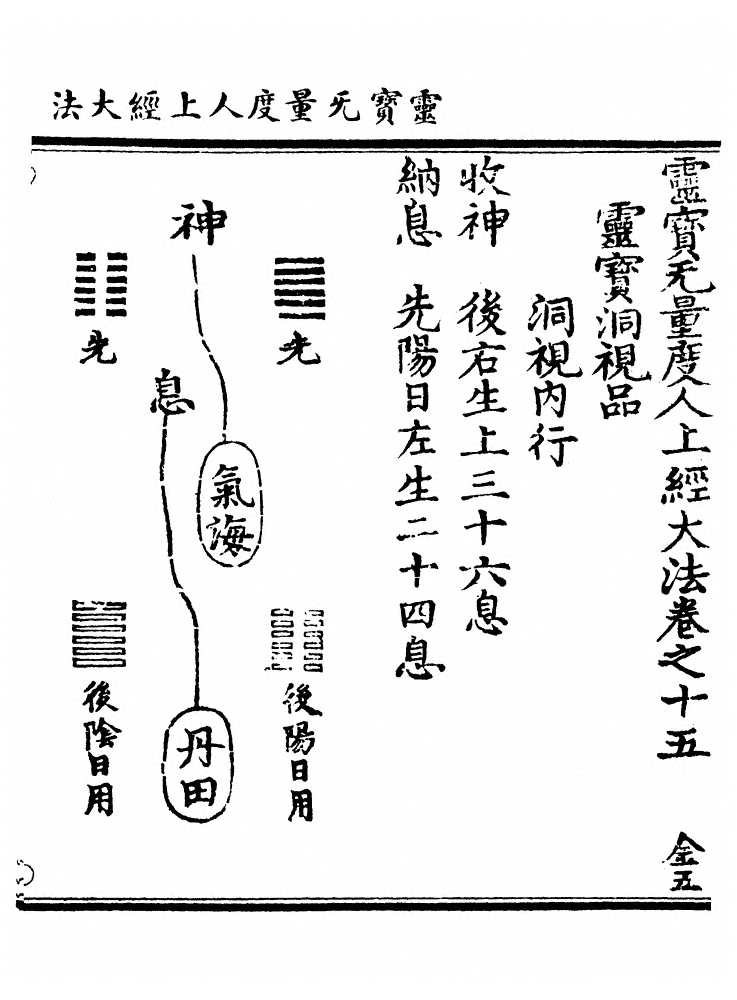 靈寶无量度人上經大法
靈寶无量度人上經大法卷之十五 金五
靈寶洞視品
洞視內行
收神 後右生上三十六息
納息 先陽日左生二十四息
先
後陽日用
神
氣海
息
丹田
先
後陰日用